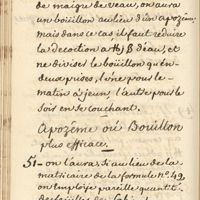 de maigre de veau, on aura
un boüillon au lieu d'un apozème,
mais dans ce cas, il faut reduire
la decoction a ß d'eau, et
ne divisés le boüillon qu'en
deux prises, l'une pour le
matin à jeun, l'autre pour le
soir en se couchant.
Apozeme où Boüillon
plus efficace.
51- on l'aura si au lieu de la
matricaire de la formule n.º 49,
on employe pareille quantité